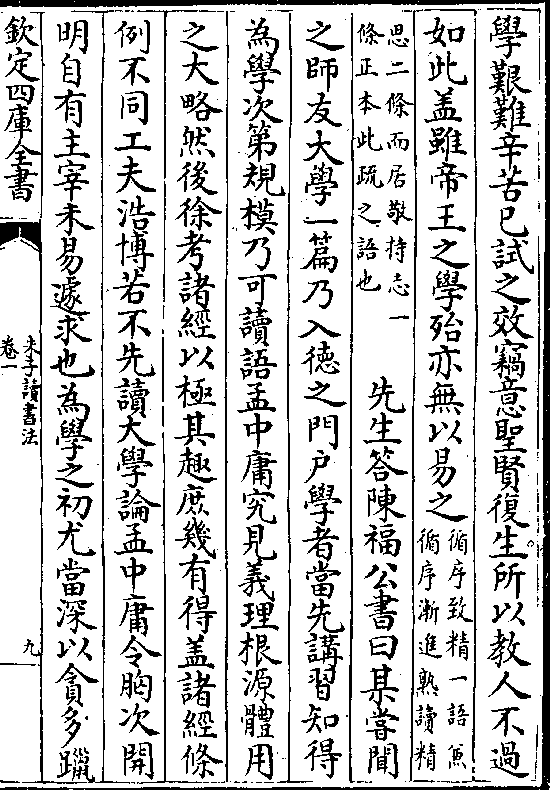 學艱難辛苦已試之效竊意聖賢復生所以教人不過
如此蓋雖帝王之學殆亦無以易之循序致精一語原
循序漸進熟讀精
思二條而居敬持志一
條正本此疏之語也
先生答陳福公書曰某嘗聞
之師友大學一篇乃入德之門戶學者當先講習知得
為學次第規模乃可讀語孟中庸究見義理根源體用
之大略然後徐考諸經以極其趣庶幾有得蓋諸經條
例不同工夫浩博若不先讀大學論孟中庸令胸次開
明自有主宰未易遽求也為學之初尤當深以貪多躐
欽定四庫全書
朱子讀書法
卷一
九